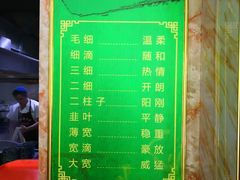 毛细 温柔
细滴 随和
三细 热情
二细 开朗
二柱子 阳刚
韭叶 平静
薄宽 稳重
宽滴 豪放
大宽 威猛